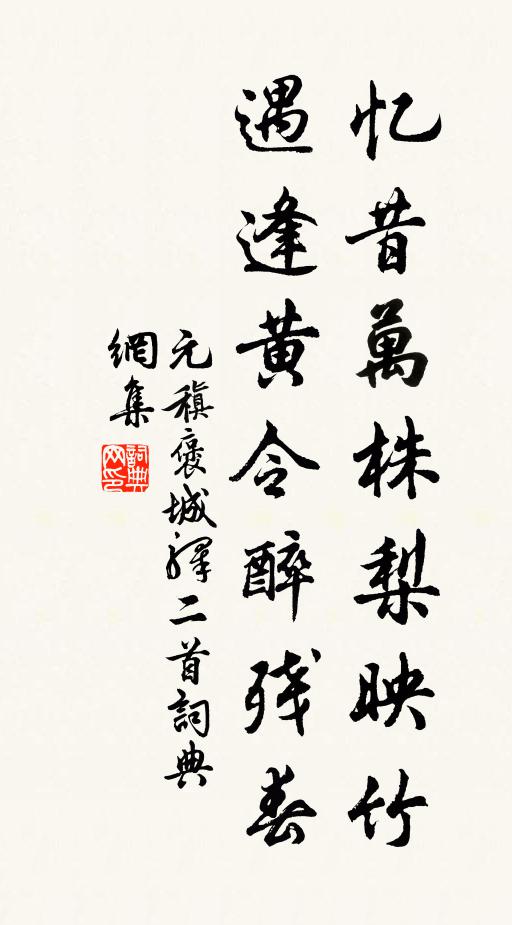 忆昔萬株梨映竹
遇逢黄令醉残春
元稹褒城驛二首詞典
網集
詞典网印